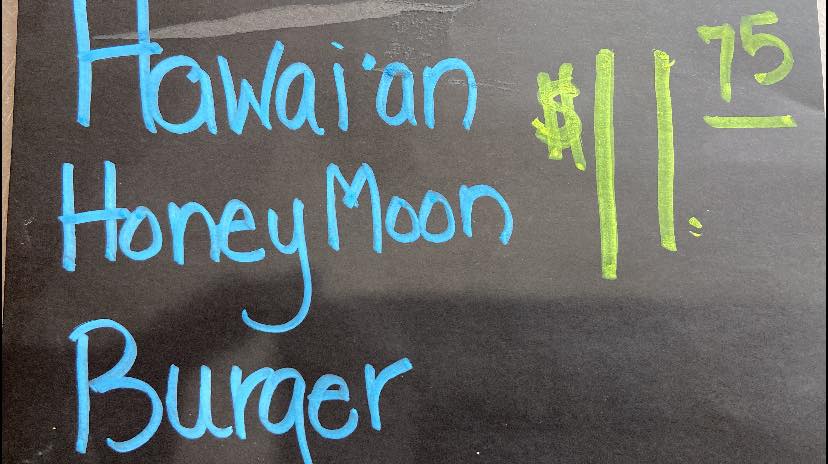 Hawai'an $11.75
Honey Moon
Burger